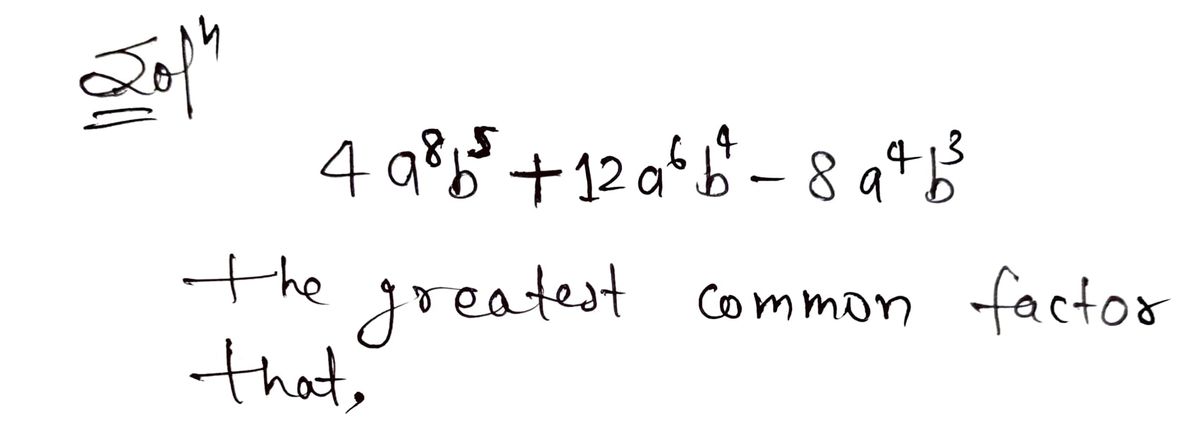 Solⁿ
4 a⁸b⁵ + 12 a⁶b⁴ - 8 a⁴b³
the greatest common factor
that,